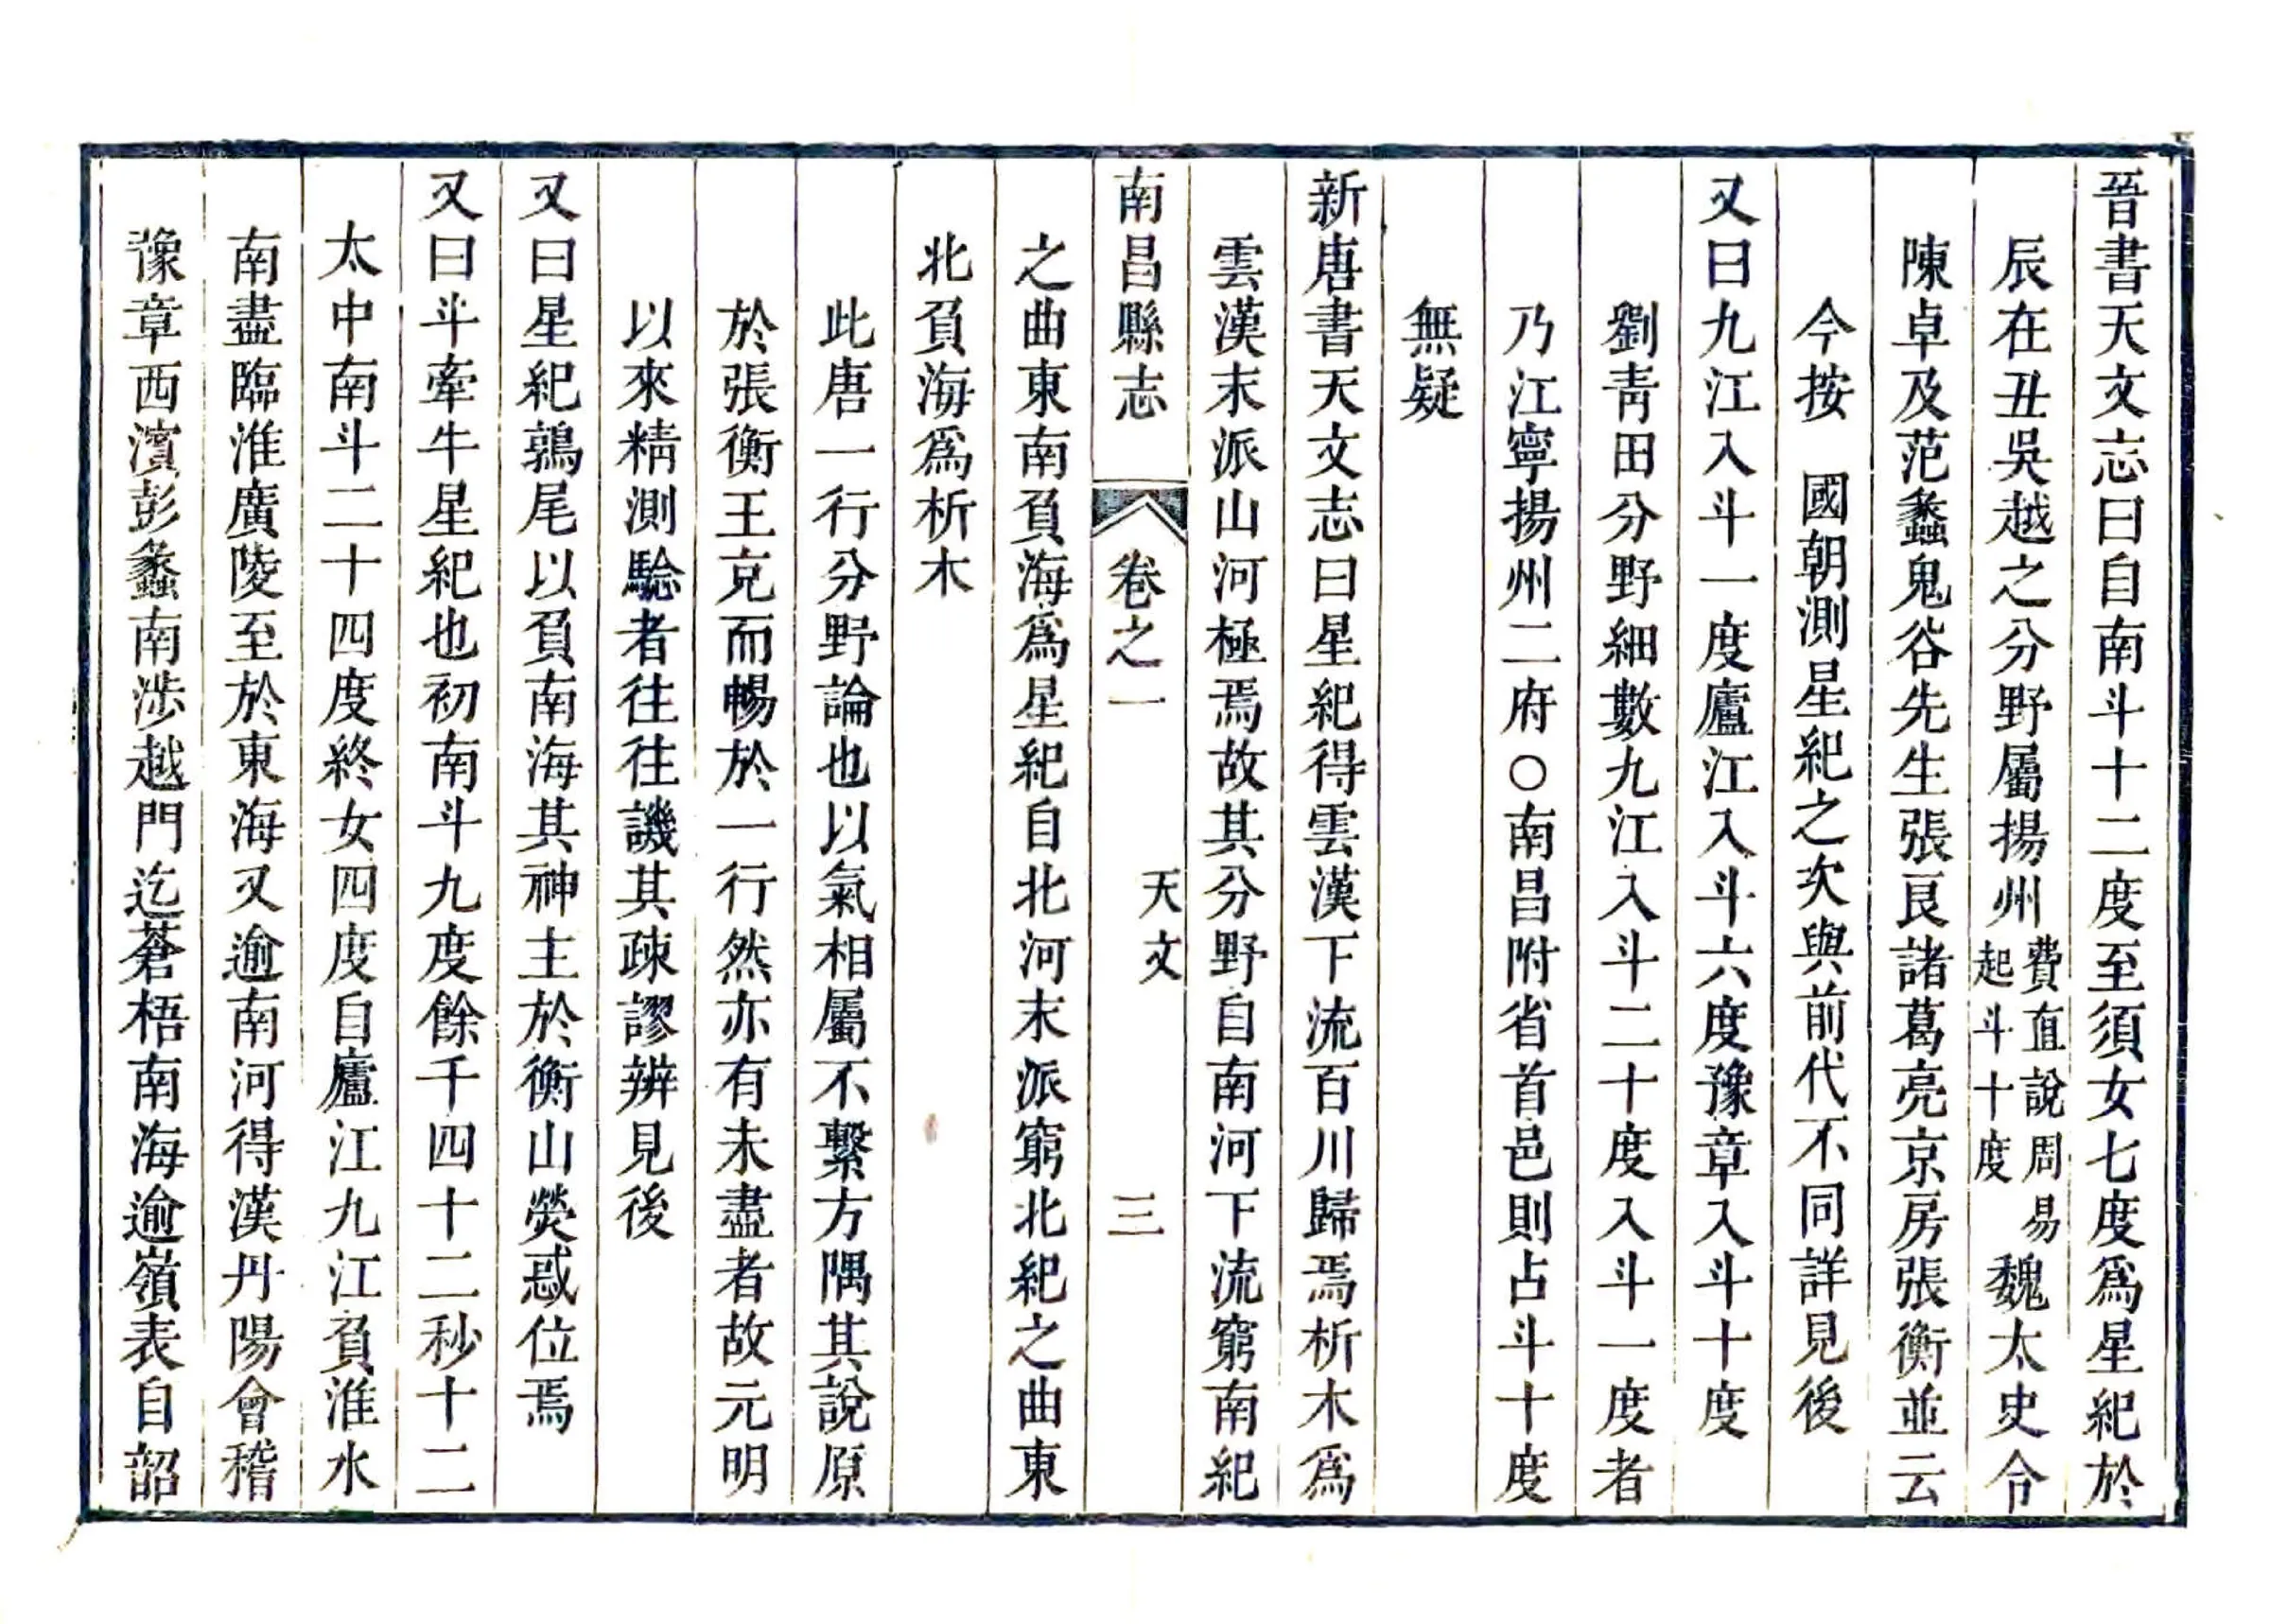 晉書天文志曰自南斗十二度至須女七度爲星紀於
辰在丑吳越之分野屬揚州費直說周易起斗十度魏太史令
陳卓及范蠡鬼谷先生張良諸葛亮京房張衡並云
今按　國朝測星紀之次與前代不同詳見後
又曰九江入斗一度廬江入斗六度豫章入斗十度
劉青田分野細數九江入斗二十度入斗一度者
乃江寧揚州二府○南昌附省首邑則占斗十度
無疑
新唐書天文志曰星紀得雲漢下流百川歸焉析木爲
雲漢末派山河極焉故其分野自南河下流窮南紀
南昌縣志　卷之一　天文　三
之曲東南負海爲星紀自北河末派窮北紀之曲東
北負海爲析木
此唐一行分野論也以氣相屬不繫方隅其說原
於張衡王充而暢於一行然亦有未盡者故元明
以來精測驗者往往譏其疎謬辨見後
又曰星紀鶉尾以負南海其神主於衡山熒惑位焉
又曰斗牽牛星紀也初南斗九度餘千四十二秒十二
太中南斗二十四度終女四度自廬江九江負淮水
南盡臨淮廣陵至於東海又逾南河得漢丹陽會稽
豫章西濱彭蠡南涉越門迄蒼梧南海逾嶺表自韶